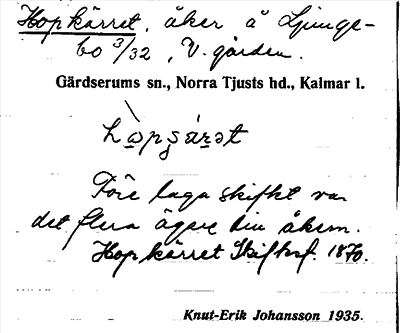 Hopkärret, åker å Ljunge-
bo 3/32, V. gården.
Gärdserums sn., Norra Tjusts hd., Kalmar l.
Före laga skiftet var
det flera ägare till åkern.
Hopkärret Skiftesf. 1870.
Knut-Erik Johansson 1935.